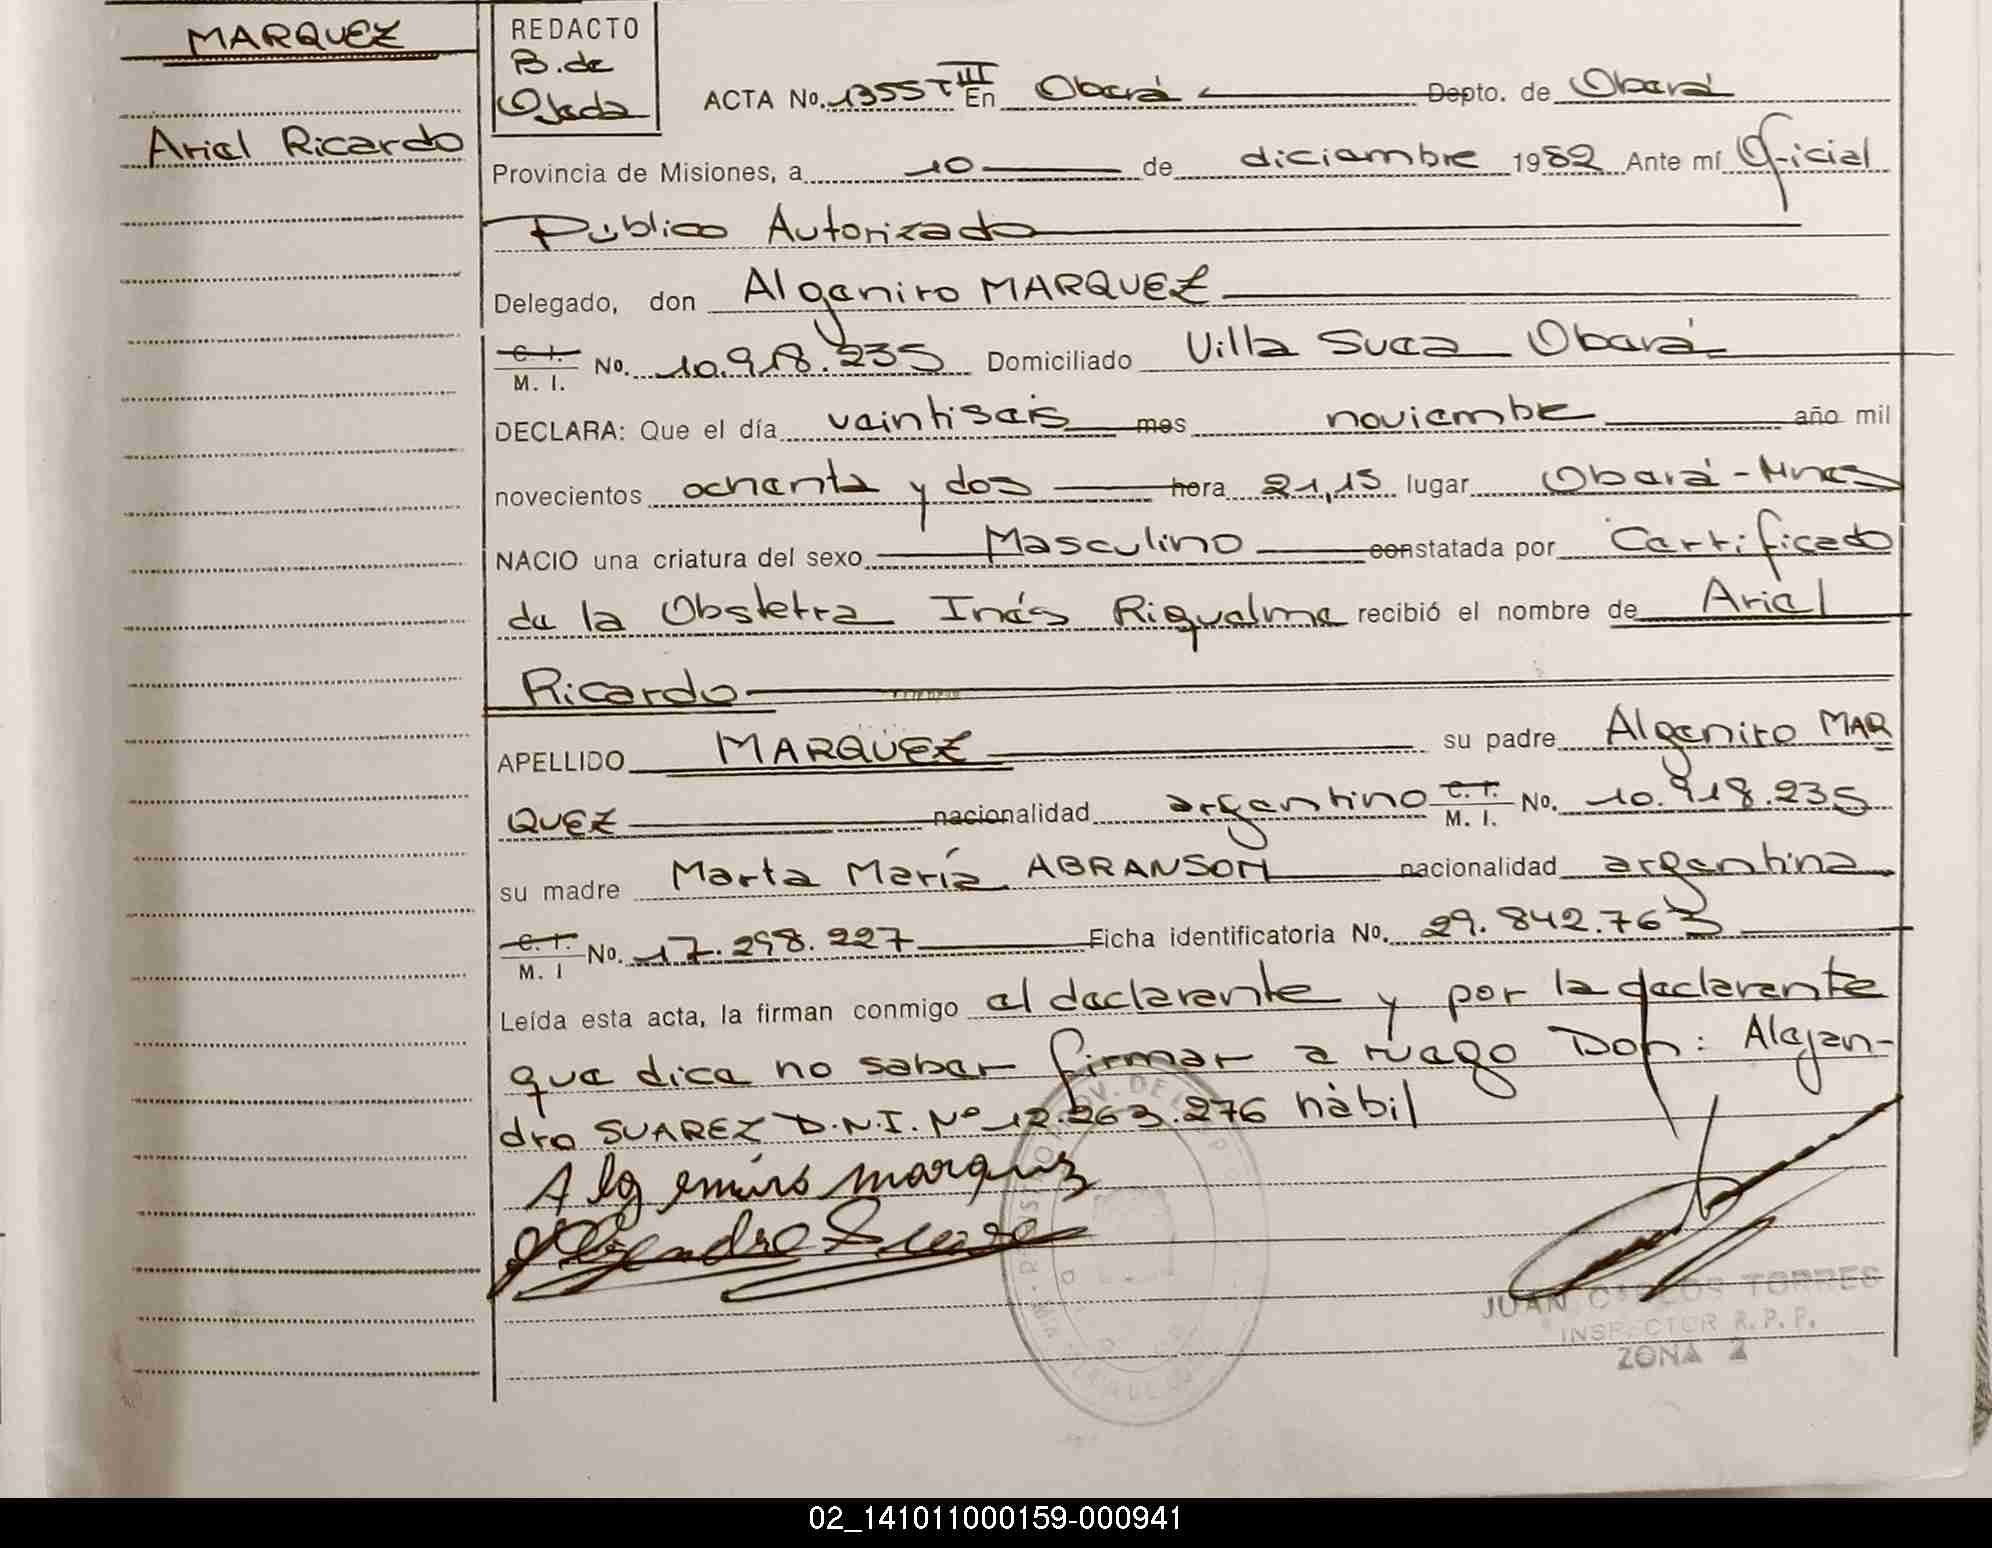 MARQUEZ
Ariel Ricardo
REDACTO
B. de
Ojeda
ACTA No. 1355 T III En Oberá Depto. de Oberá
Provincia de Misiones, a 10 de diciembre 1982 Ante mí Oficial
Público Autorizado
Delegado, don Algeniro MARQUEZ
C. I. / M. I. No. 10.918.235 Domiciliado Villa Suca Oberá
DECLARA: Que el día veintiseis mes noviembre año mil
novecientos ochenta y dos hora 21,15 lugar Oberá - Mnes
NACIO una criatura del sexo Masculino constatada por Certificado
de la Obstetra Inés Riquelme recibió el nombre de Ariel
Ricardo
APELLIDO MARQUEZ su padre Algeniro MAR
QUEZ nacionalidad argentino C. I. / M. I. No. 10.918.235
su madre Marta María ABRANSON nacionalidad argentina
C. I. / M. I No. 17.298.227 Ficha identificatoria No. 29.842.763
Leída esta acta, la firman conmigo el declarente y por la declarente
que dice no saber firmar a ruego Don: Alejan-
dro SUAREZ D.N.I. Nº 12.263.276 hàbil
Algemiro marquez
Alejandro Suarez
JUAN CARLOS TORRES
INSPECTOR R.P.P.
ZONA 2
02_141011000159-000941